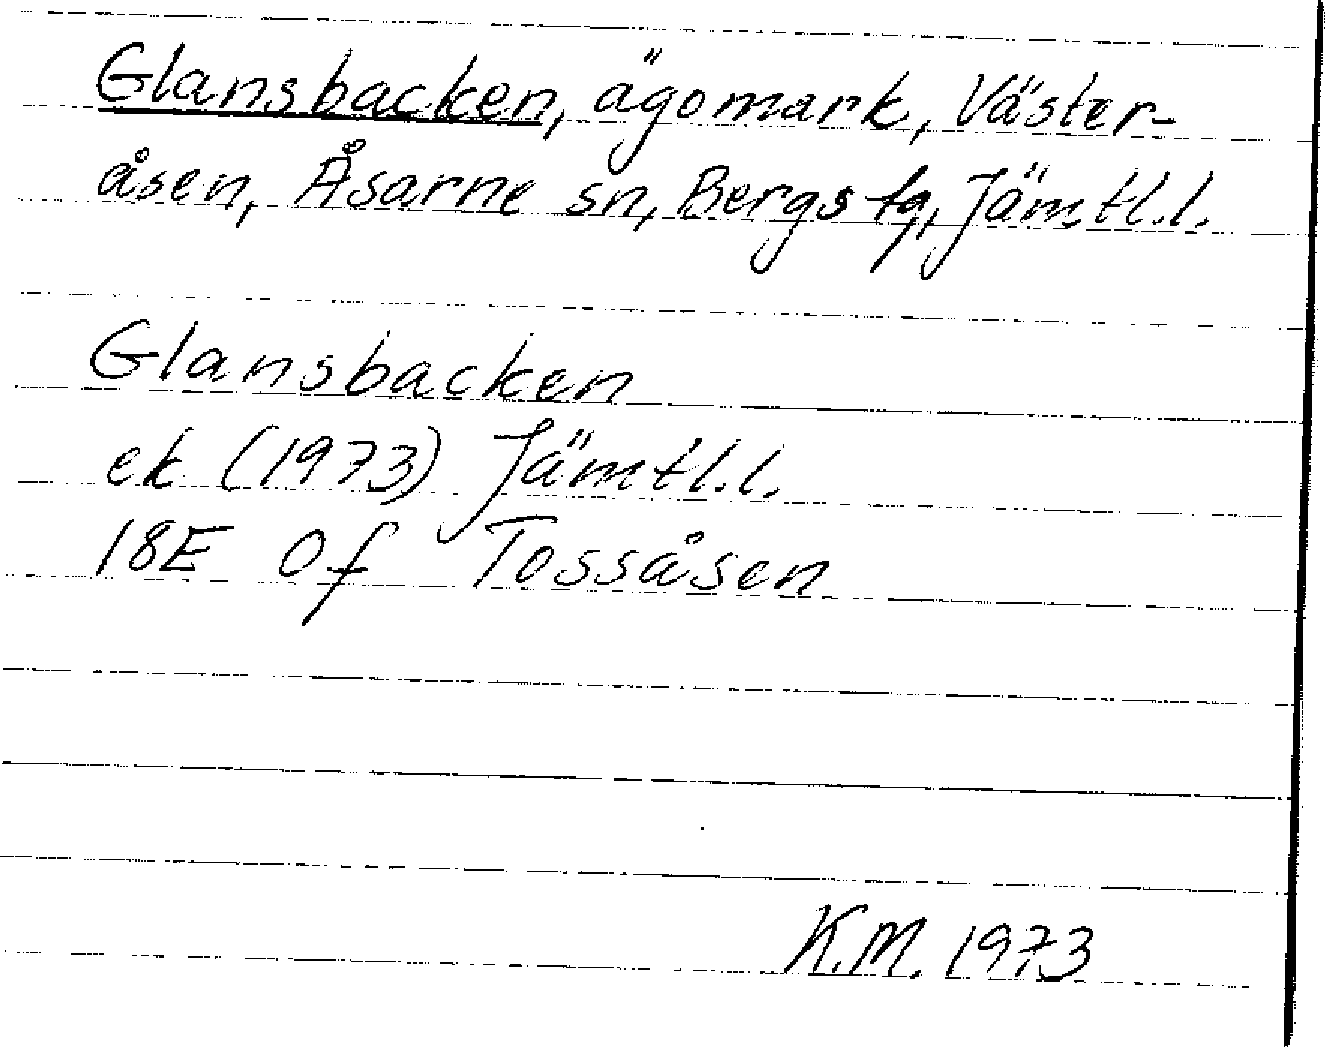 Glansbacken, ägomark, Väster-
åsen, Åsarne sn, Bergs tg, Jämtl.l.
Glansbacken
ek (1973) Jämtl.l.
18E 0f Tossåsen
K.M. 1973